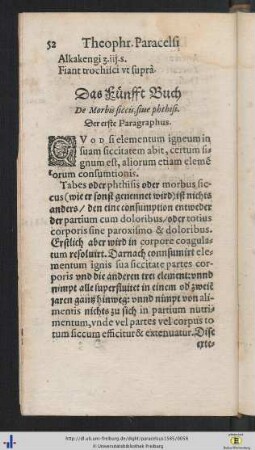 52 Theophr. Paracelsi
Alkakengi ʒ.iij.s.
Fiant trochisci vt suprà.
Das Fünfft Buch
De Morbis siccis, siue phthisi.
Der erste Paragraphus.
QVod si elementum igneum in
suam siccitatem abit, certum si-
gnum est, aliorum etiam elemē
torum consumtionis.
Tabes oder phthisis oder morbus sic-
cus (wie er sonst genennet wird) ist nichts
anders / den eine consumption entweder
der partium cum doloribus / oder totius
corporis sine paroxismo & doloribus.
Erstlich aber wird in corpore coagula-
tum resoluirt. Darnach connsumirt ele-
mentum ignis sua siccitate partes cor-
poris vnd die anderen trei element vnnd
nimpt alle superfluitet in einem ob zweiē
jaren gantz hinweg: vnnd nimpt von ali-
mentis nichts zu sich in partium nutri-
mentum, vnde vel partes vel corpus to-
tum siccum efficitur & extenuatur. Dise
exte-
http://dl.ub.uni-freiburg.de/diglit/paracelsus1585/0056
© Universitätsbibliothek Freiburg